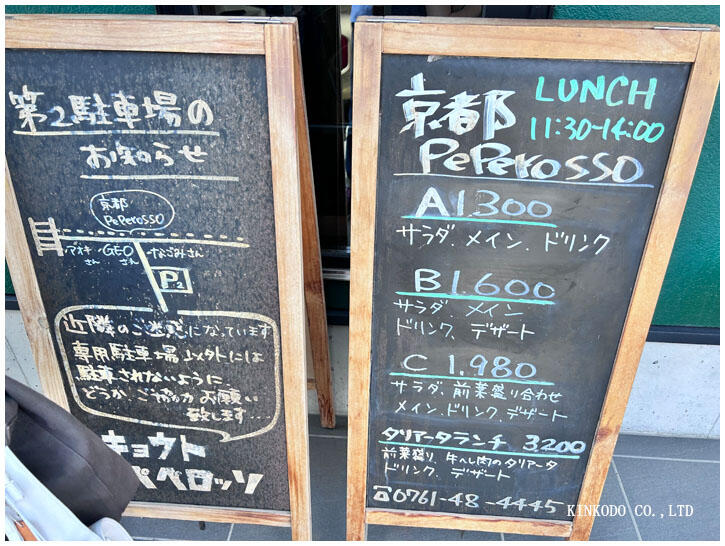 第2駐車場の
お知らせ
京都
PePerosso
アオキさん
GEOさん
なごみさん
P2
近隣のご迷惑になっています
専用駐車場以外には
駐車されないように
どうか、ご協力お願い
致します…
キョウト
ペペロッソ
京都
LUNCH
11:30-14:00
PePerosso
A 1.300
サラダ、メイン、ドリンク
B 1.600
サラダ、メイン
ドリンク、デザート
C 1,980
サラダ、前菜盛り合わせ
メイン、ドリンク、デザート
タリアータランチ 3,200
前菜盛り、牛ヘレ肉のタリアータ
ドリンク、デザート
☎0761-48-4445
KINKODO CO.,LTD